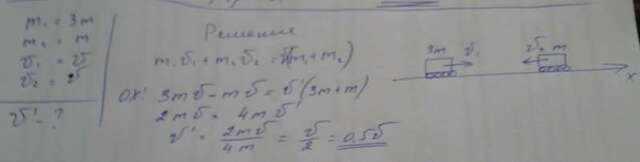 m₁ = 3m
m₂ = m
υ₁ = υ
υ₂ = υ
υ' - ?
Решение
m₁υ₁ + m₂υ₂ = υ'(m₁ + m₂)
ОХ: 3mυ - mυ = υ'(3m + m)
2mυ = 4mυ'
υ' = 2mυ / 4m = υ / 2 = 0,5υ
3m υ₁ υ₂ m
x